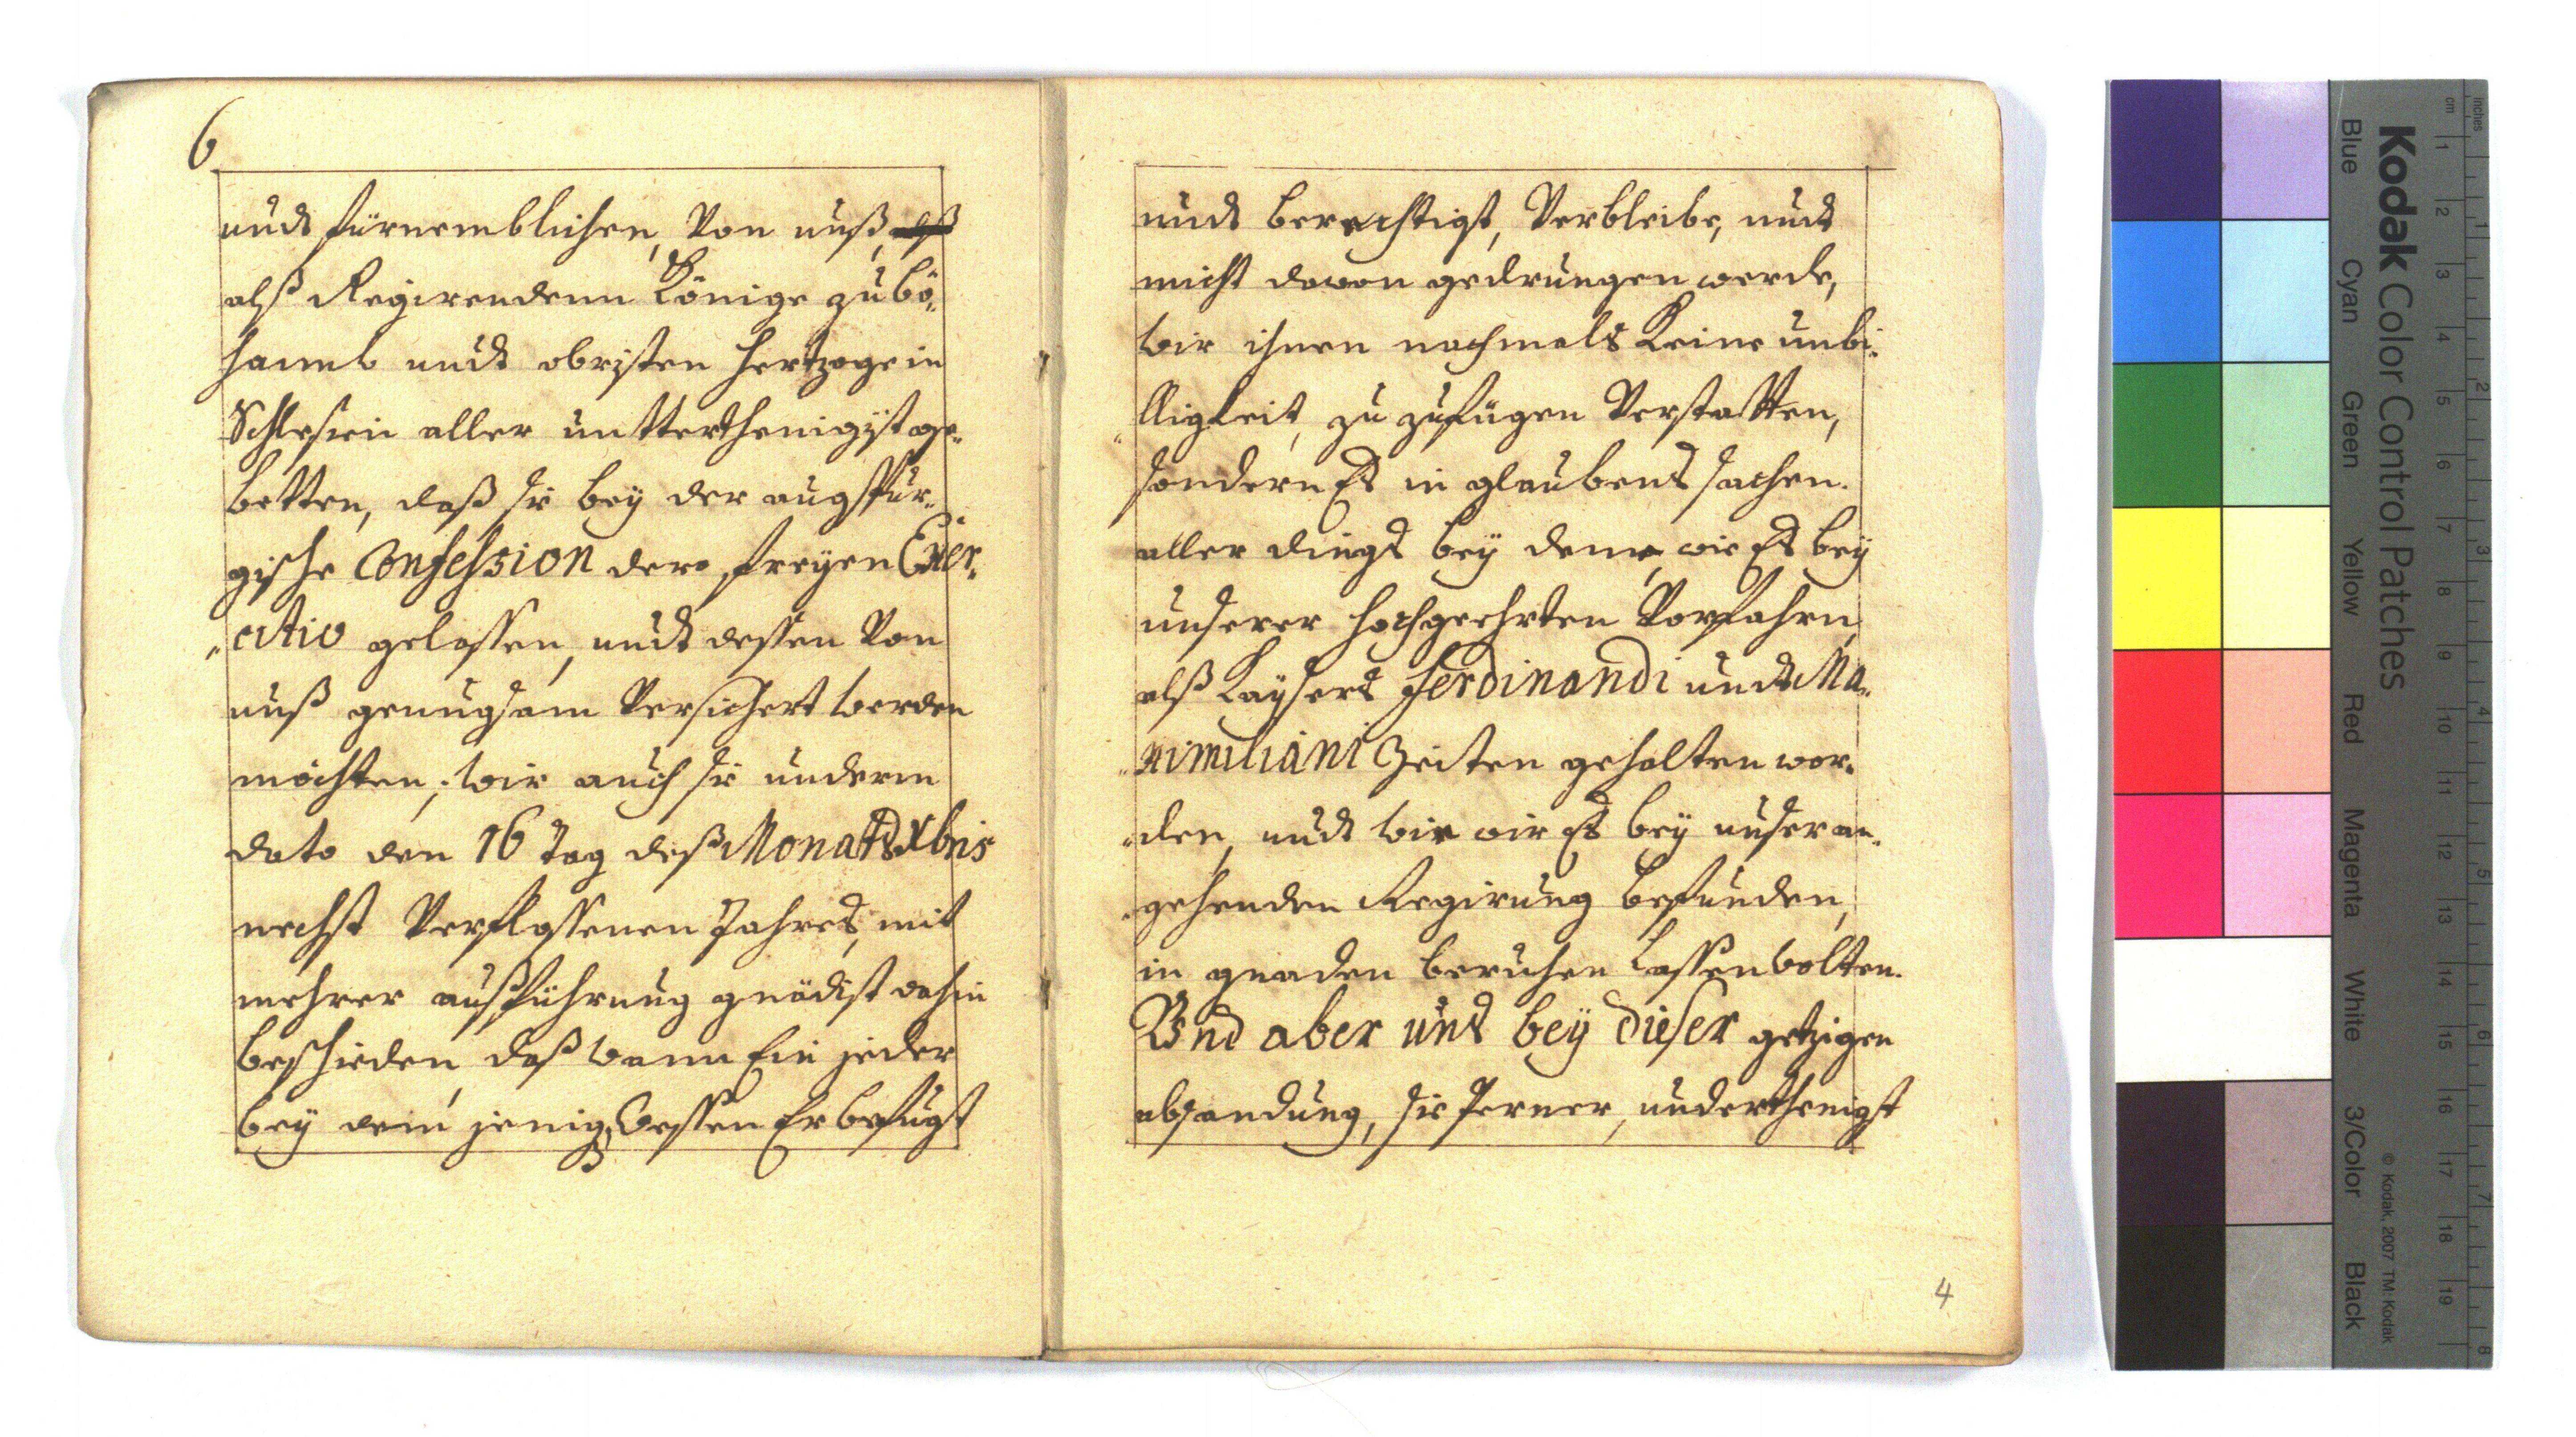 6
undt fürnemblichen, Von unß,
alß Regirendenn Könige zu bö-
haimb undt obristen Hertzoge in
Schlesien aller untterthenigist ge-
betten, daß sie bey der augspur-
gische Confession dero freyen Exer-
citio gelassen, undt dessen Von
unß genugsam Versichert werden
möchten, wir auch sie underm
dato den 16 Tag deß Monats Xbris
nechst Verflossenen Jahres, mit
mehrer außführung gnädist dahin
beschieden, daß wann Ein jeder
bey dem jenig, dessen Er befugt
undt berechtigt, Verbleibe, undt
nicht davon gedrungen werde,
wir ihnen nachmals Keine unbi-
lligkeit, zu zufügen Verstatten,
sondern Es in glaubens sachen.
aller dings bey deme, wie Es bey
unserer hochgeehrten Vorfahrn,
alß Kaysers Ferdinandi undt Ma-
ximiliani Zeiten gehalten wor-
den, undt wie wir Es bey unser an-
gehenden Regirung befunden,
in gnaden beruhen Lassen wolten.
Und aber uns bey dieser jetzigen
absandung, sie ferner, underthenigst
4
Kodak Color Control Patches
Blue Cyan Green Yellow Red Magenta White 3/Color Black
© Kodak, 2007 TM: Kodak
inches 1 2 3 4 5 6 7 8
cm 1 2 3 4 5 6 7 8 9 10 11 12 13 14 15 16 17 18 19